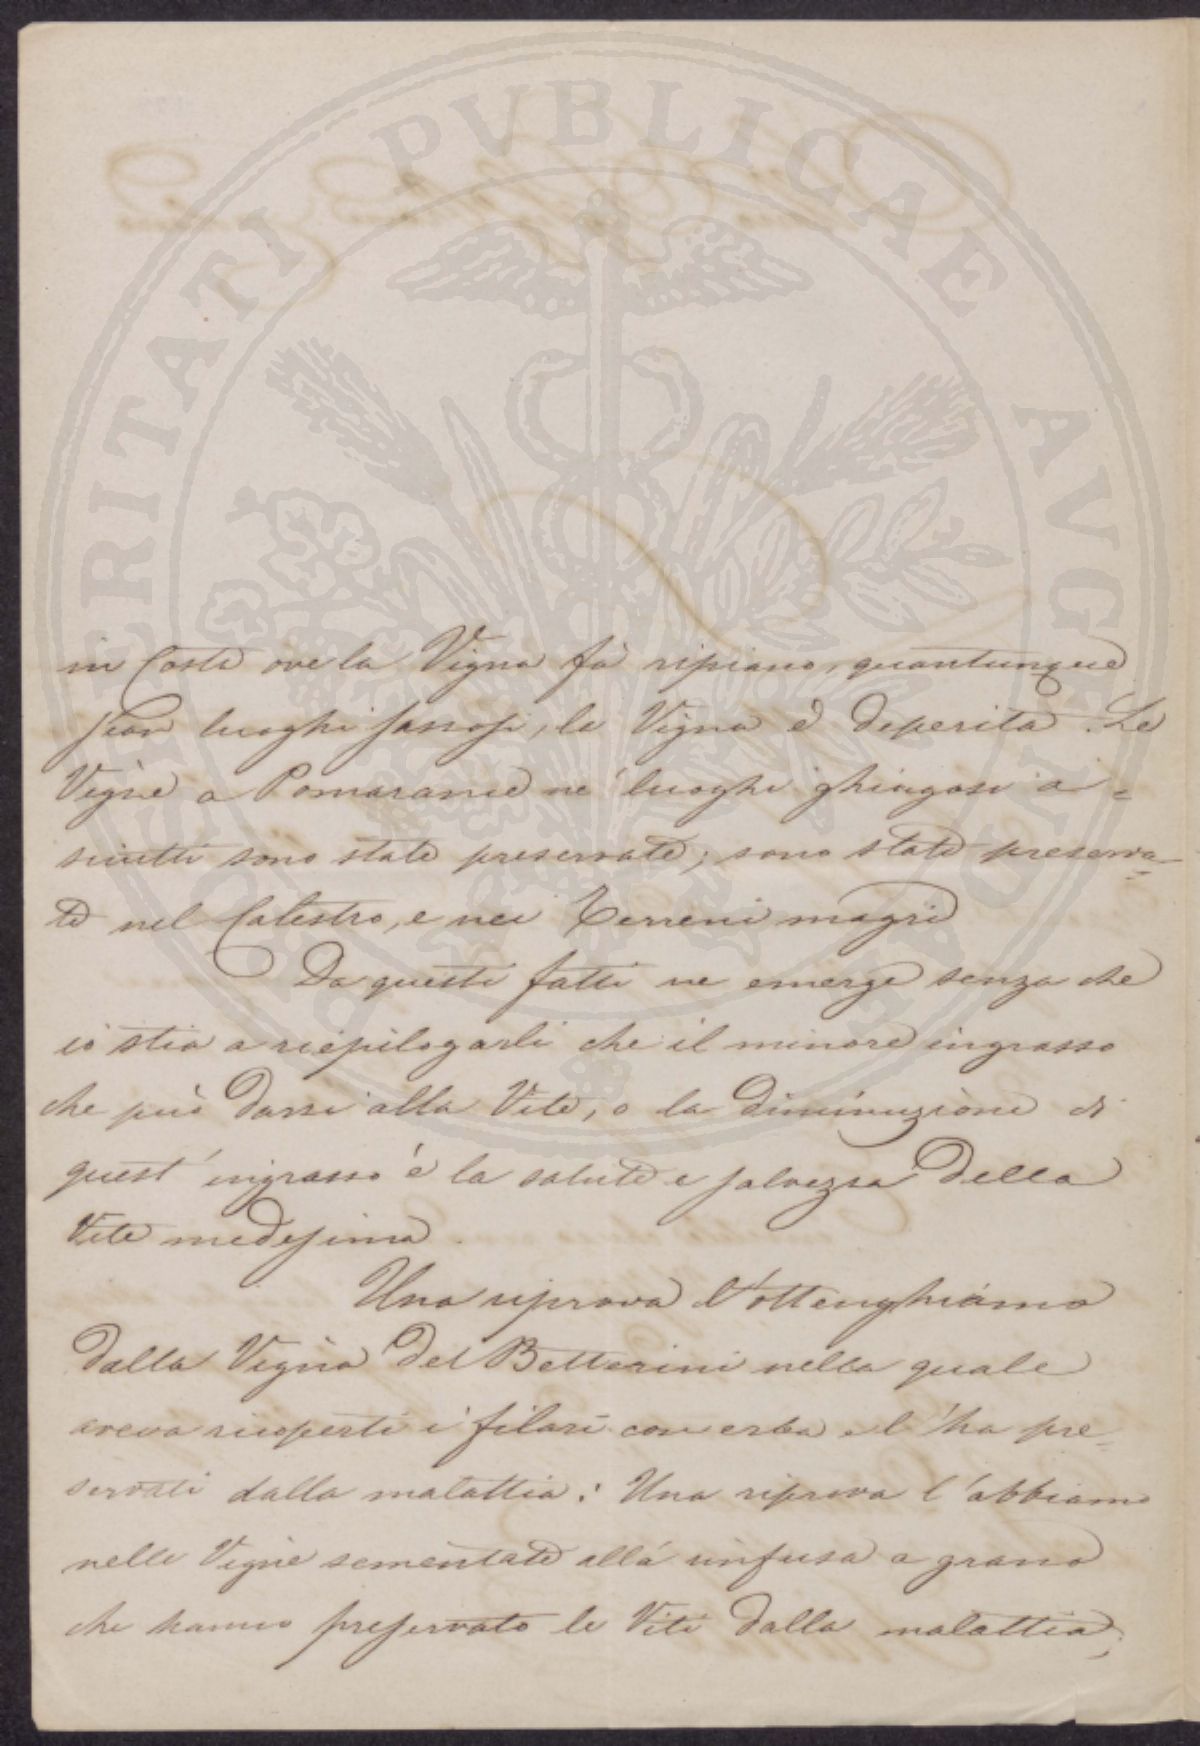 PROSPERITATI PVBLICAE AVGENDAE
in Costa ove la Vigna fà ripiano, quantunque
sian luoghi sassosi, la Vigna è deperita. Le
Vigne a Pomarance ne' luoghi ghiagosi a=
sciutti sono state preservate; sono state preserva=
te nel Galestro, e nei Terreni magri
Da questi fatti ne emerge senza che
io stia a riepilogarli che il minore ingrasso
che può darsi alla Vite, o la diminuzione di
quest'ingrasso è la salute e salvezza della
Vite medesima.
Una riprova l'ottenghiamo
dalla Vigna del Bettarini nella quale
aveva ricoperti i filari con erba e l'ha pre=
servati dalla malattia: Una riprova l'abbiamo
nelle Vigne sementate alla rinfusa a grano
che hanno preservato le Viti dalla malattia;